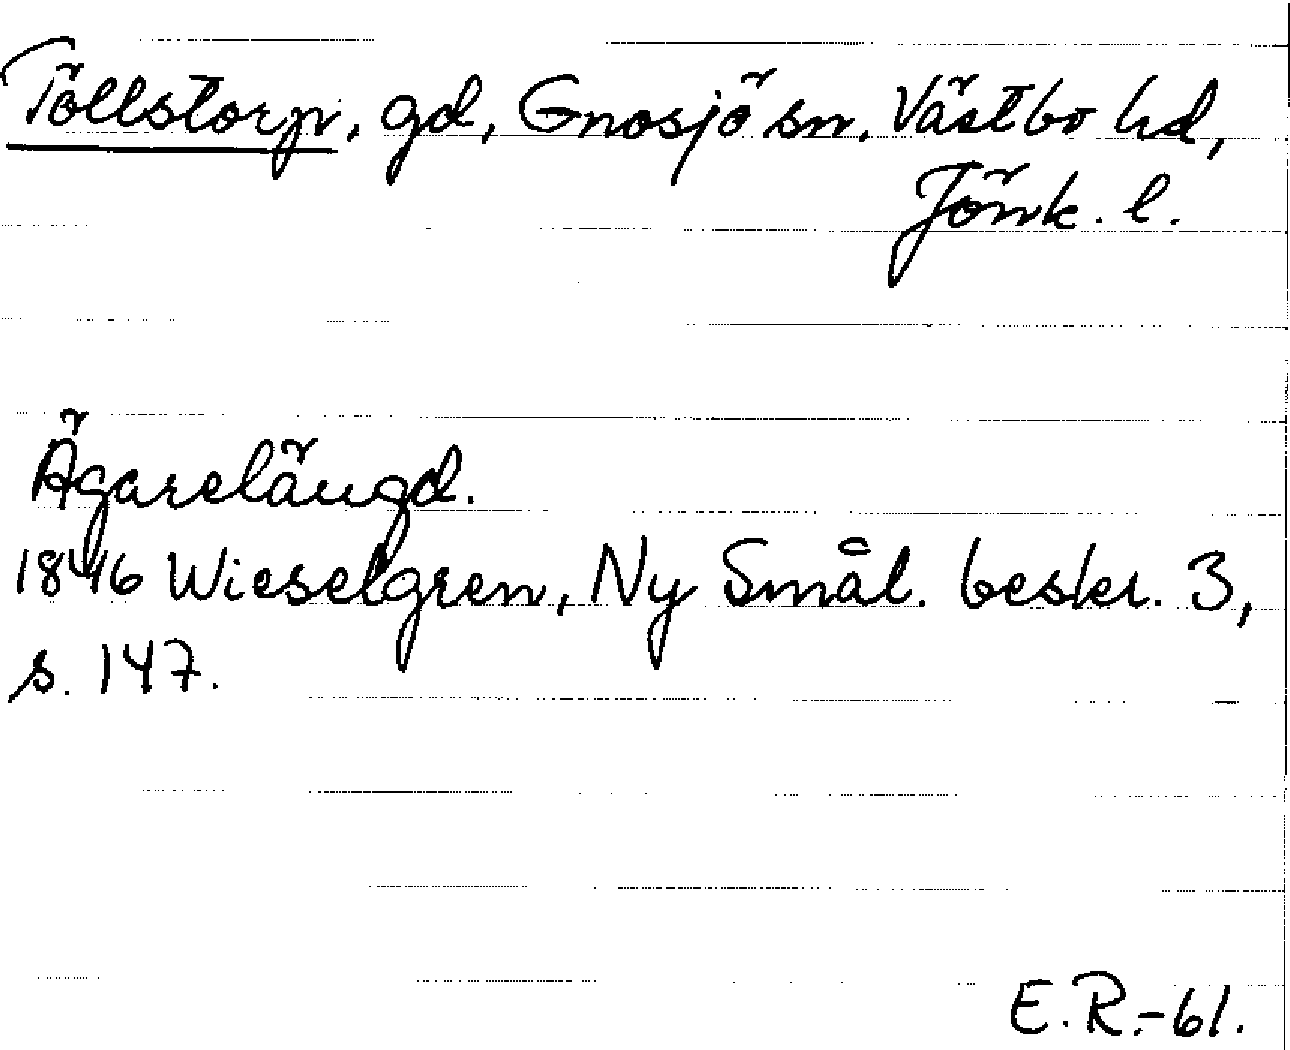 Töllstorp, gd, Gnosjö sn, Västbo hd,
Jönk. l.
Ägarelängd.
1846 Wieselgren, Ny Smål. beskr. 3,
s. 147.
E.R.-61.